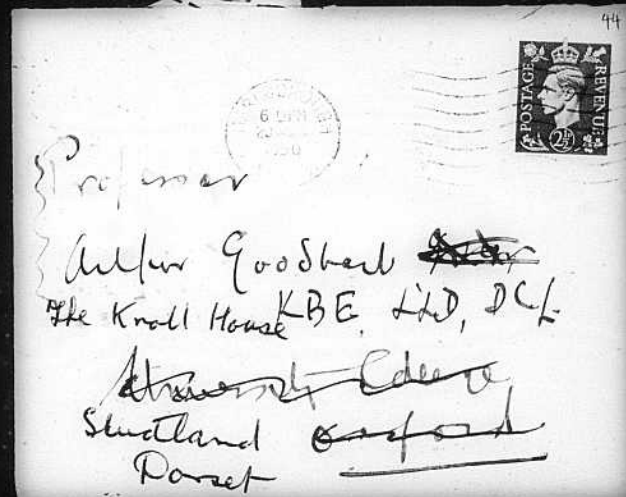 44
POSTAGE REVENUE
2½D
6 PM
1950
Professor
Arthur Goodhart
The Knoll House KBE, LLD, DCL
University College
Studland Oxford
Dorset